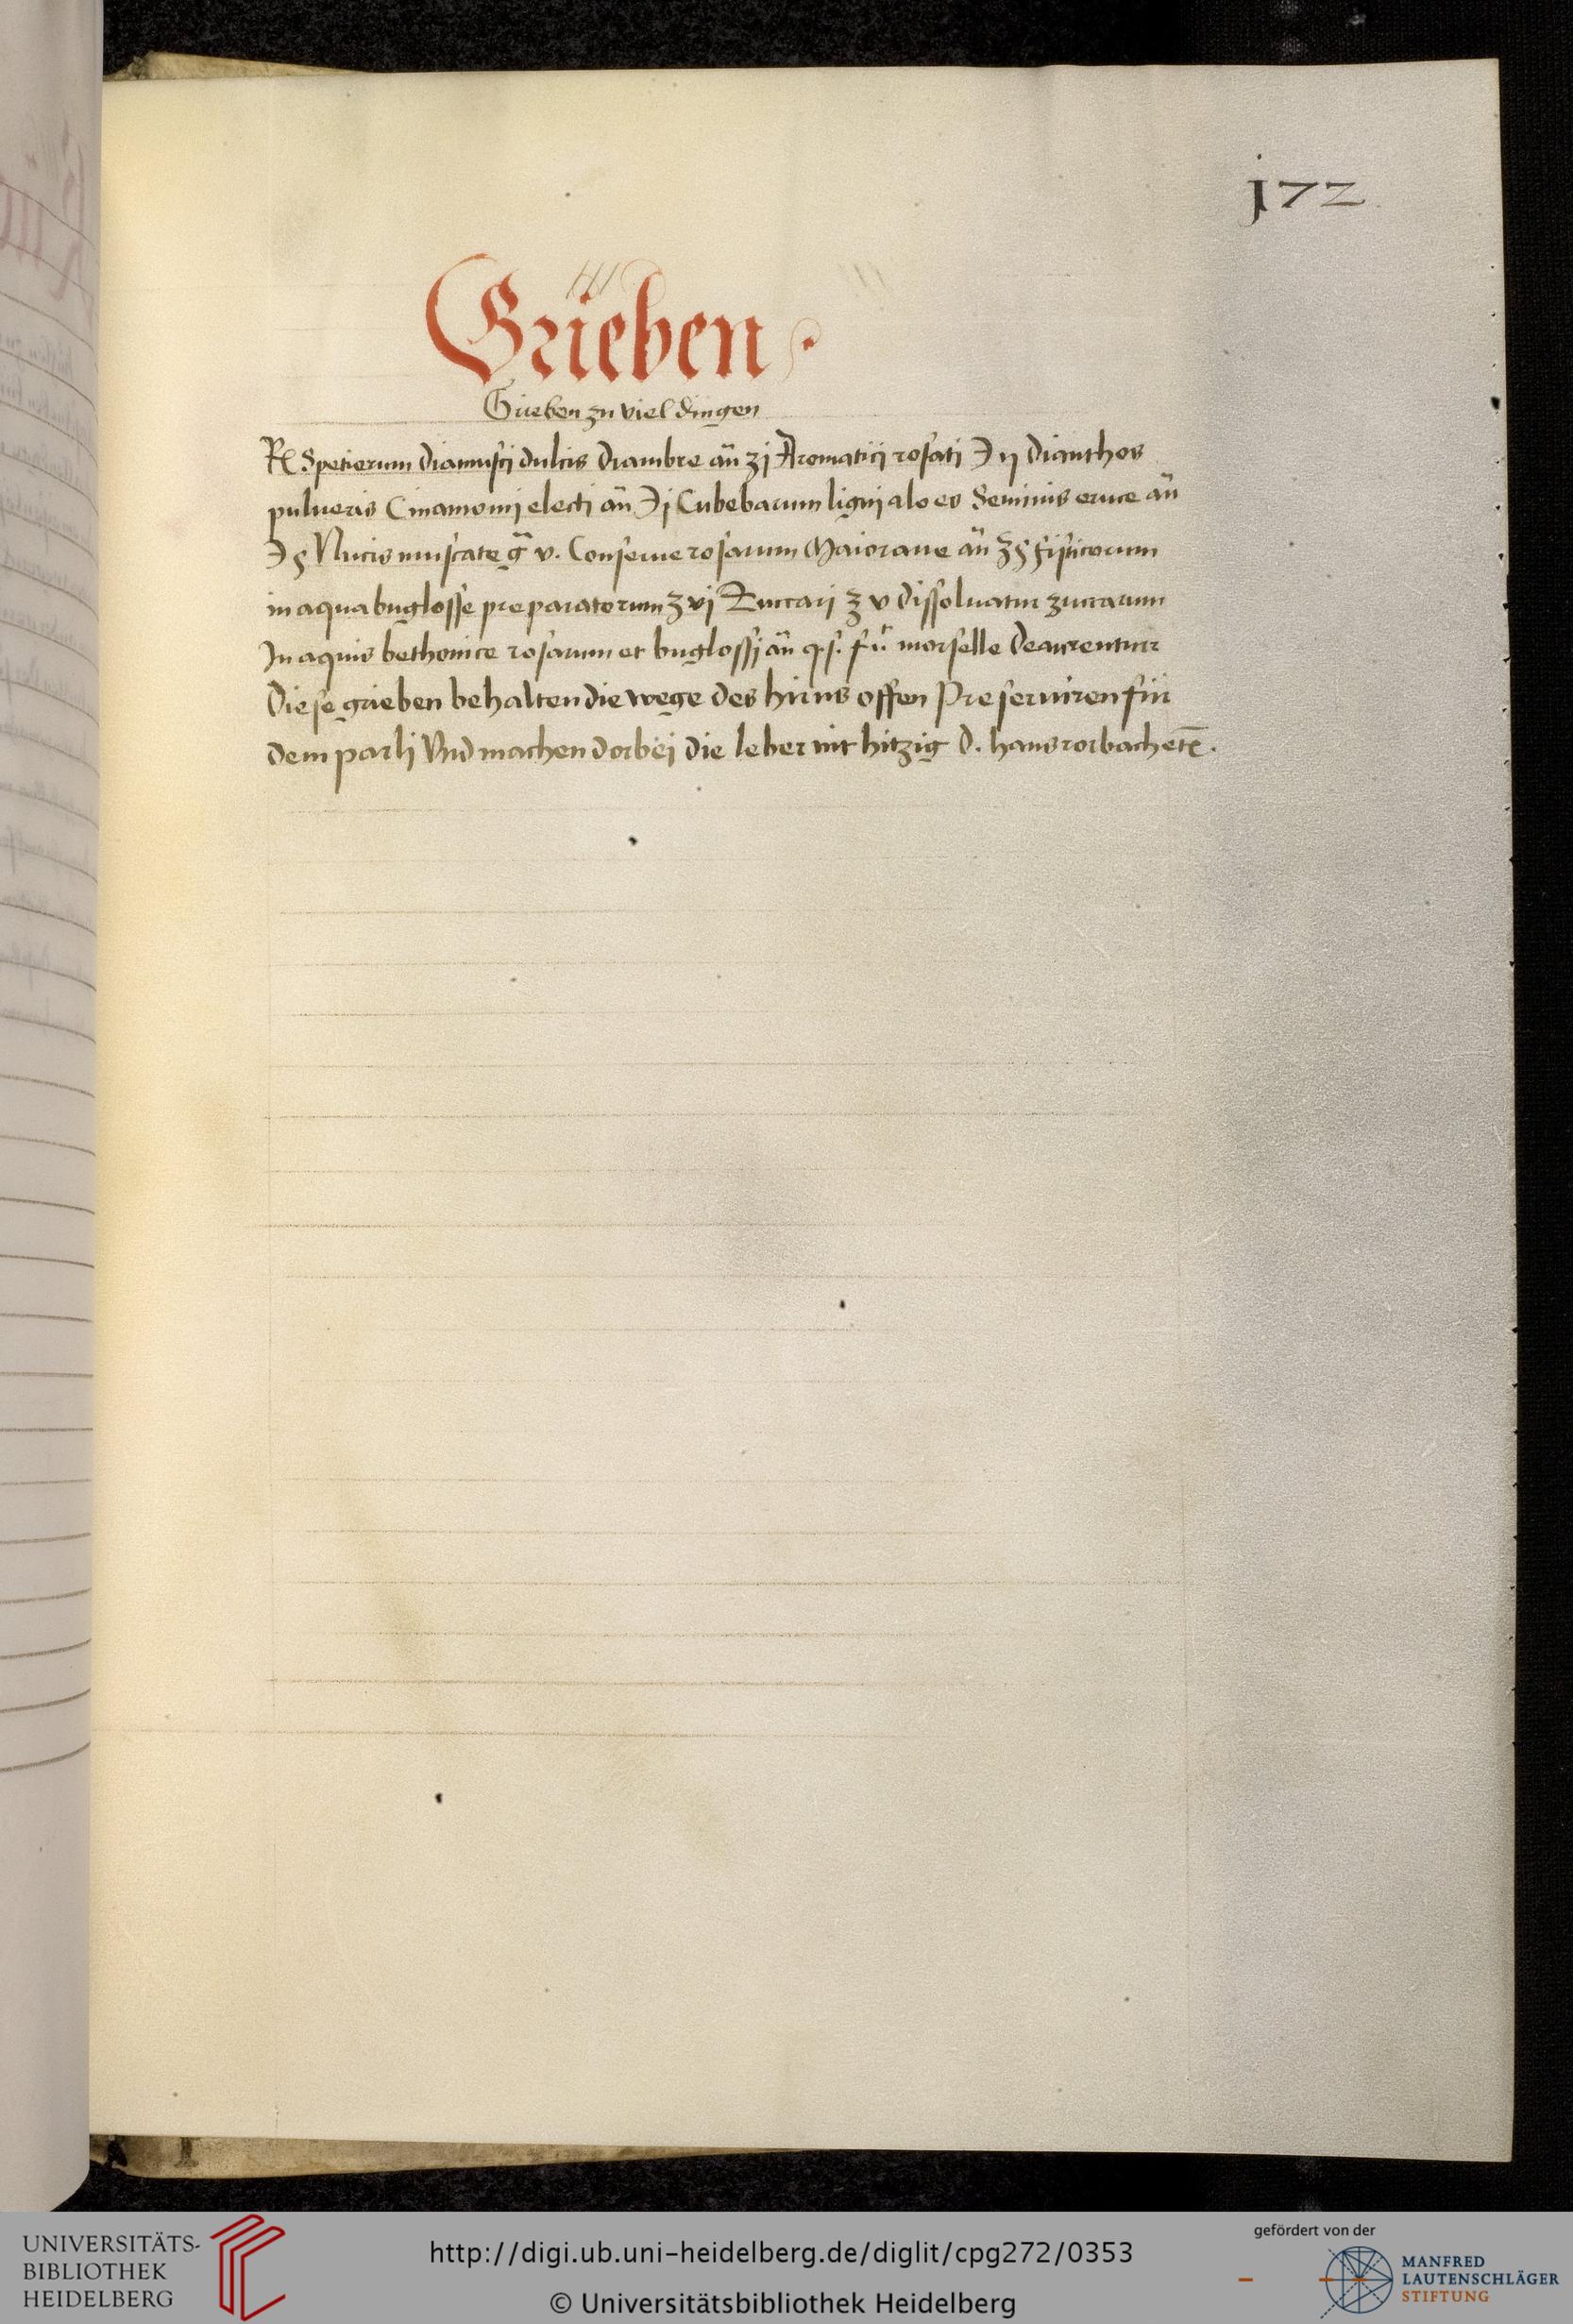 j72
Grieben.
Grieben zu viel dingen
R Spetierum diamusci dulcis diambre añ ʒj Aromatici rosati ℈ ij dianthos
pulueris Cinamomj electi añ ℈j Cubebarum ligni aloes Seminis eruce añ
℈ ß Nucis muscate g v. Conserue rosarum Maiorane añ ʒß fisticorum
in aqua buglosse preparatorum ʒ vj Zuccari ℥ v dissoluatur zuccarum
In aquis bethonice rosarum et buglossj añ q.s. morselle deaurentur
Diese grieben behalten die wege des hirns offen Preseruiren für
dem parli Vnd machen dorbëj die leber nit hitzig D. hans rorbach etc.
UNIVERSITÄTS-
BIBLIOTHEK
HEIDELBERG
http://digi.ub.uni-heidelberg.de/diglit/cpg272/0353
© Universitätsbibliothek Heidelberg
gefördert von der
MANFRED
LAUTENSCHLÄGER
STIFTUNG